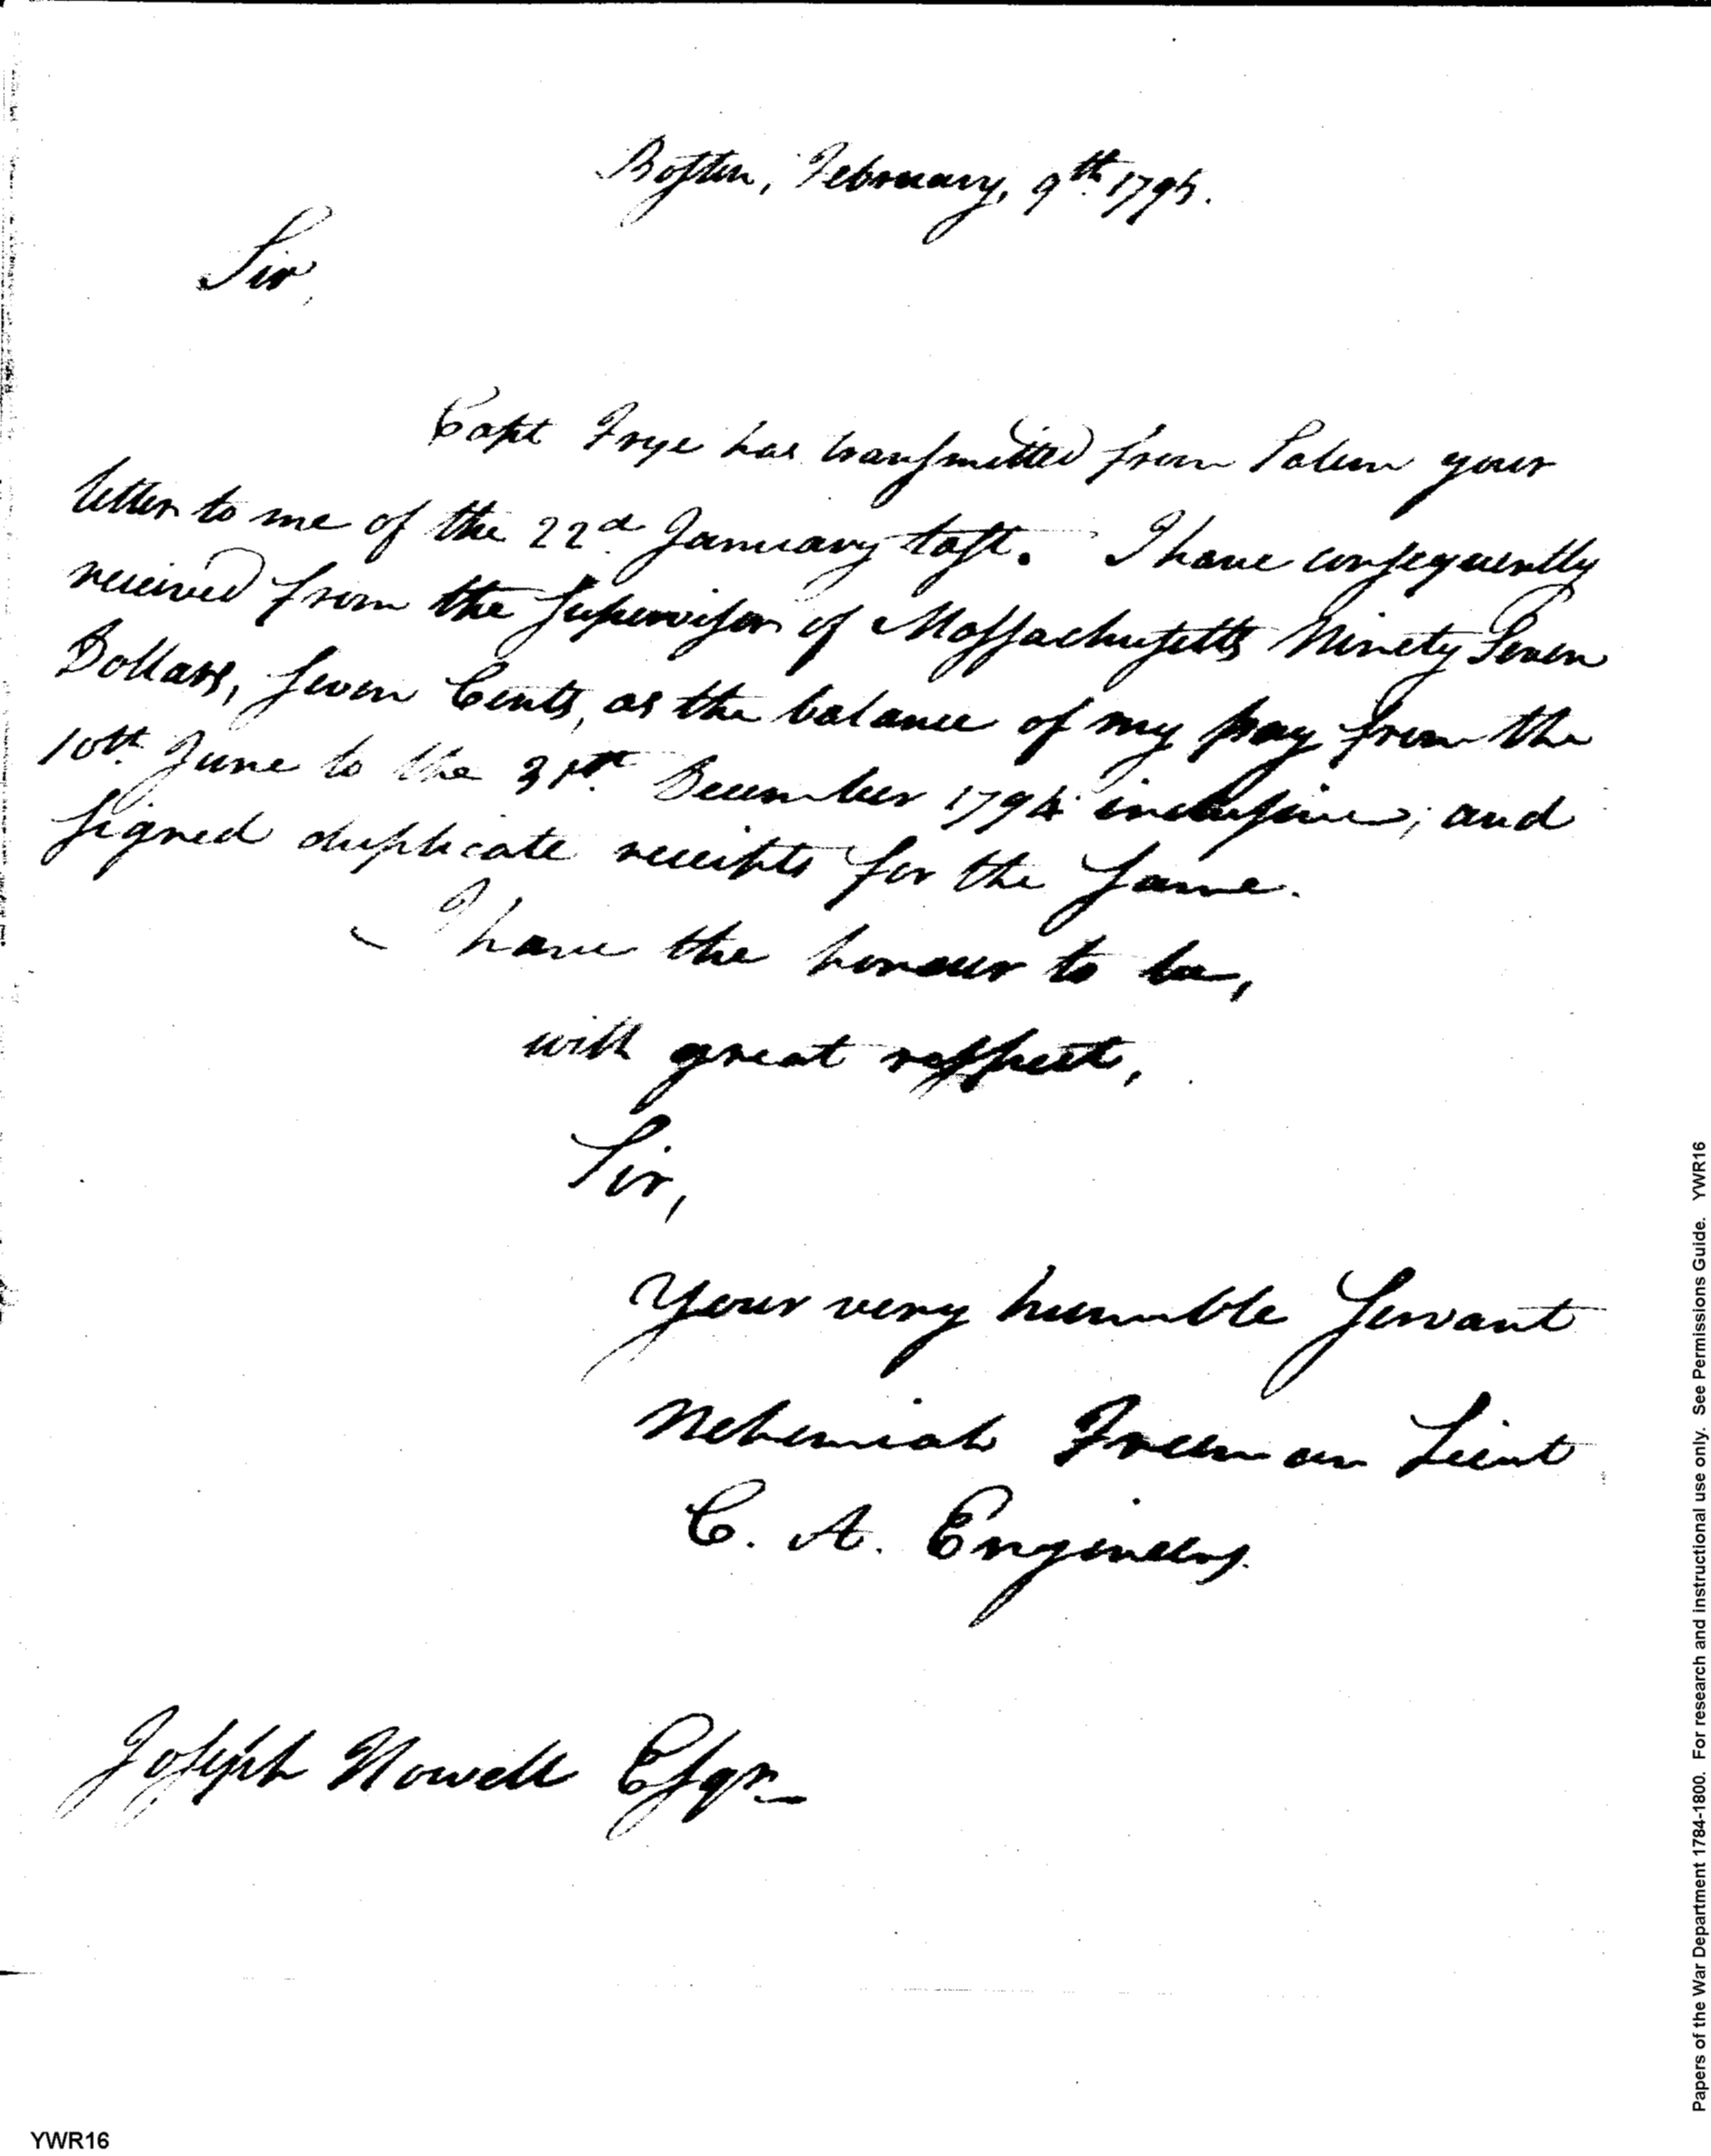 Boston, February, 9th 1795.
Sir,
Capt Frye has transmitted from Salem your
letter to me of the 22d January last. I have consequently
received from the Supervisor of Massachusetts Ninety Seven
Dollars, seven Cents, as the balance of my pay from the
10th June to the 31st December 1794 inclusive; and
signed duplicate receipts for the same.
I have the honour to be,
with great respect,
Sir,
Your very humble Servant
Nehemiah Freeman Lieut
C. A. Engineers.
Joseph Howell Esqr
YWR16
Papers of the War Department 1784-1800. For research and instructional use only. See Permissions Guide. YWR16